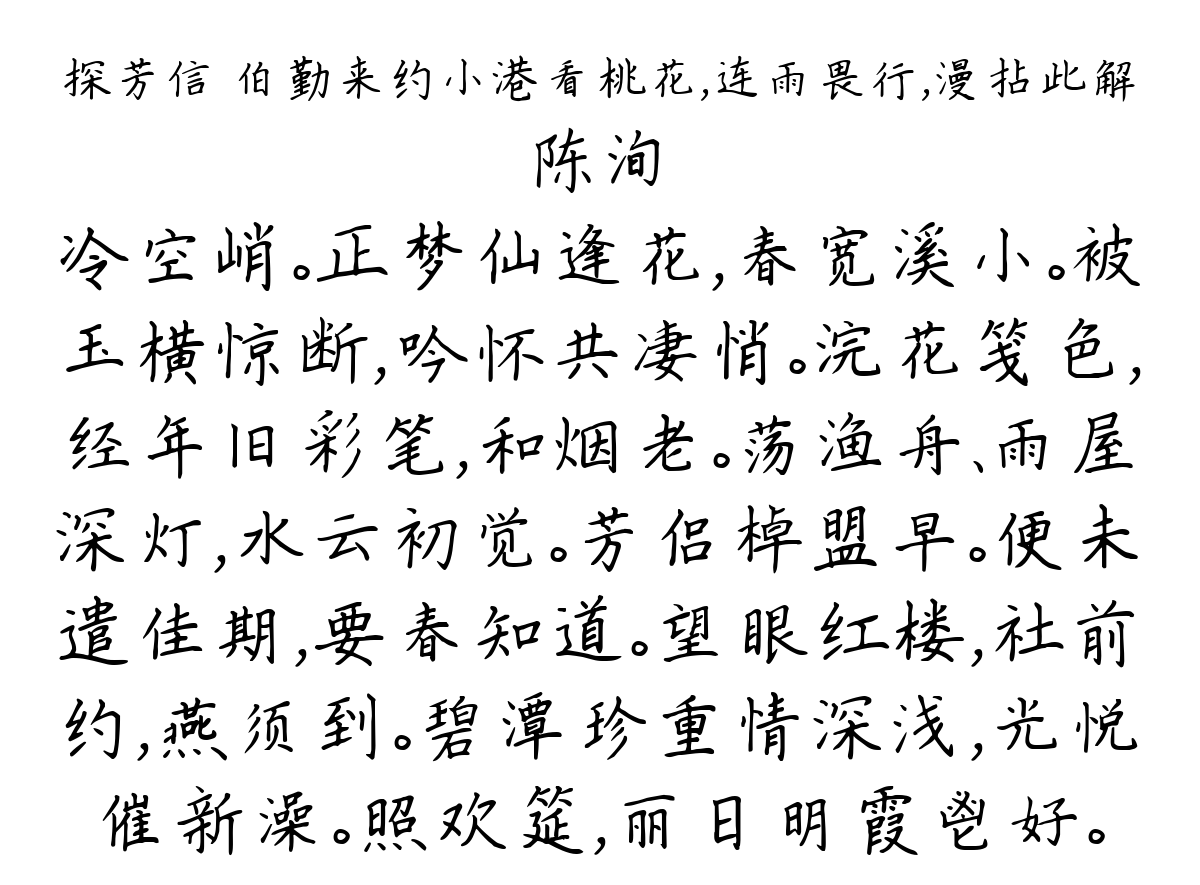 探芳信 伯勤来约小港看桃花,连雨畏行,漫拈此解
陈洵
冷空峭。正梦仙逢花,春宽溪小。被
玉横惊断,吟怀共凄悄。浣花笺色,
经年旧彩笔,和烟老。荡渔舟、雨屋
深灯,水云初觉。芳侣棹盟早。便未
遣佳期,要春知道。望眼红楼,社前
约,燕须到。碧潭珍重情深浅,光悦
催新澡。照欢筵,丽日明霞鬯好。